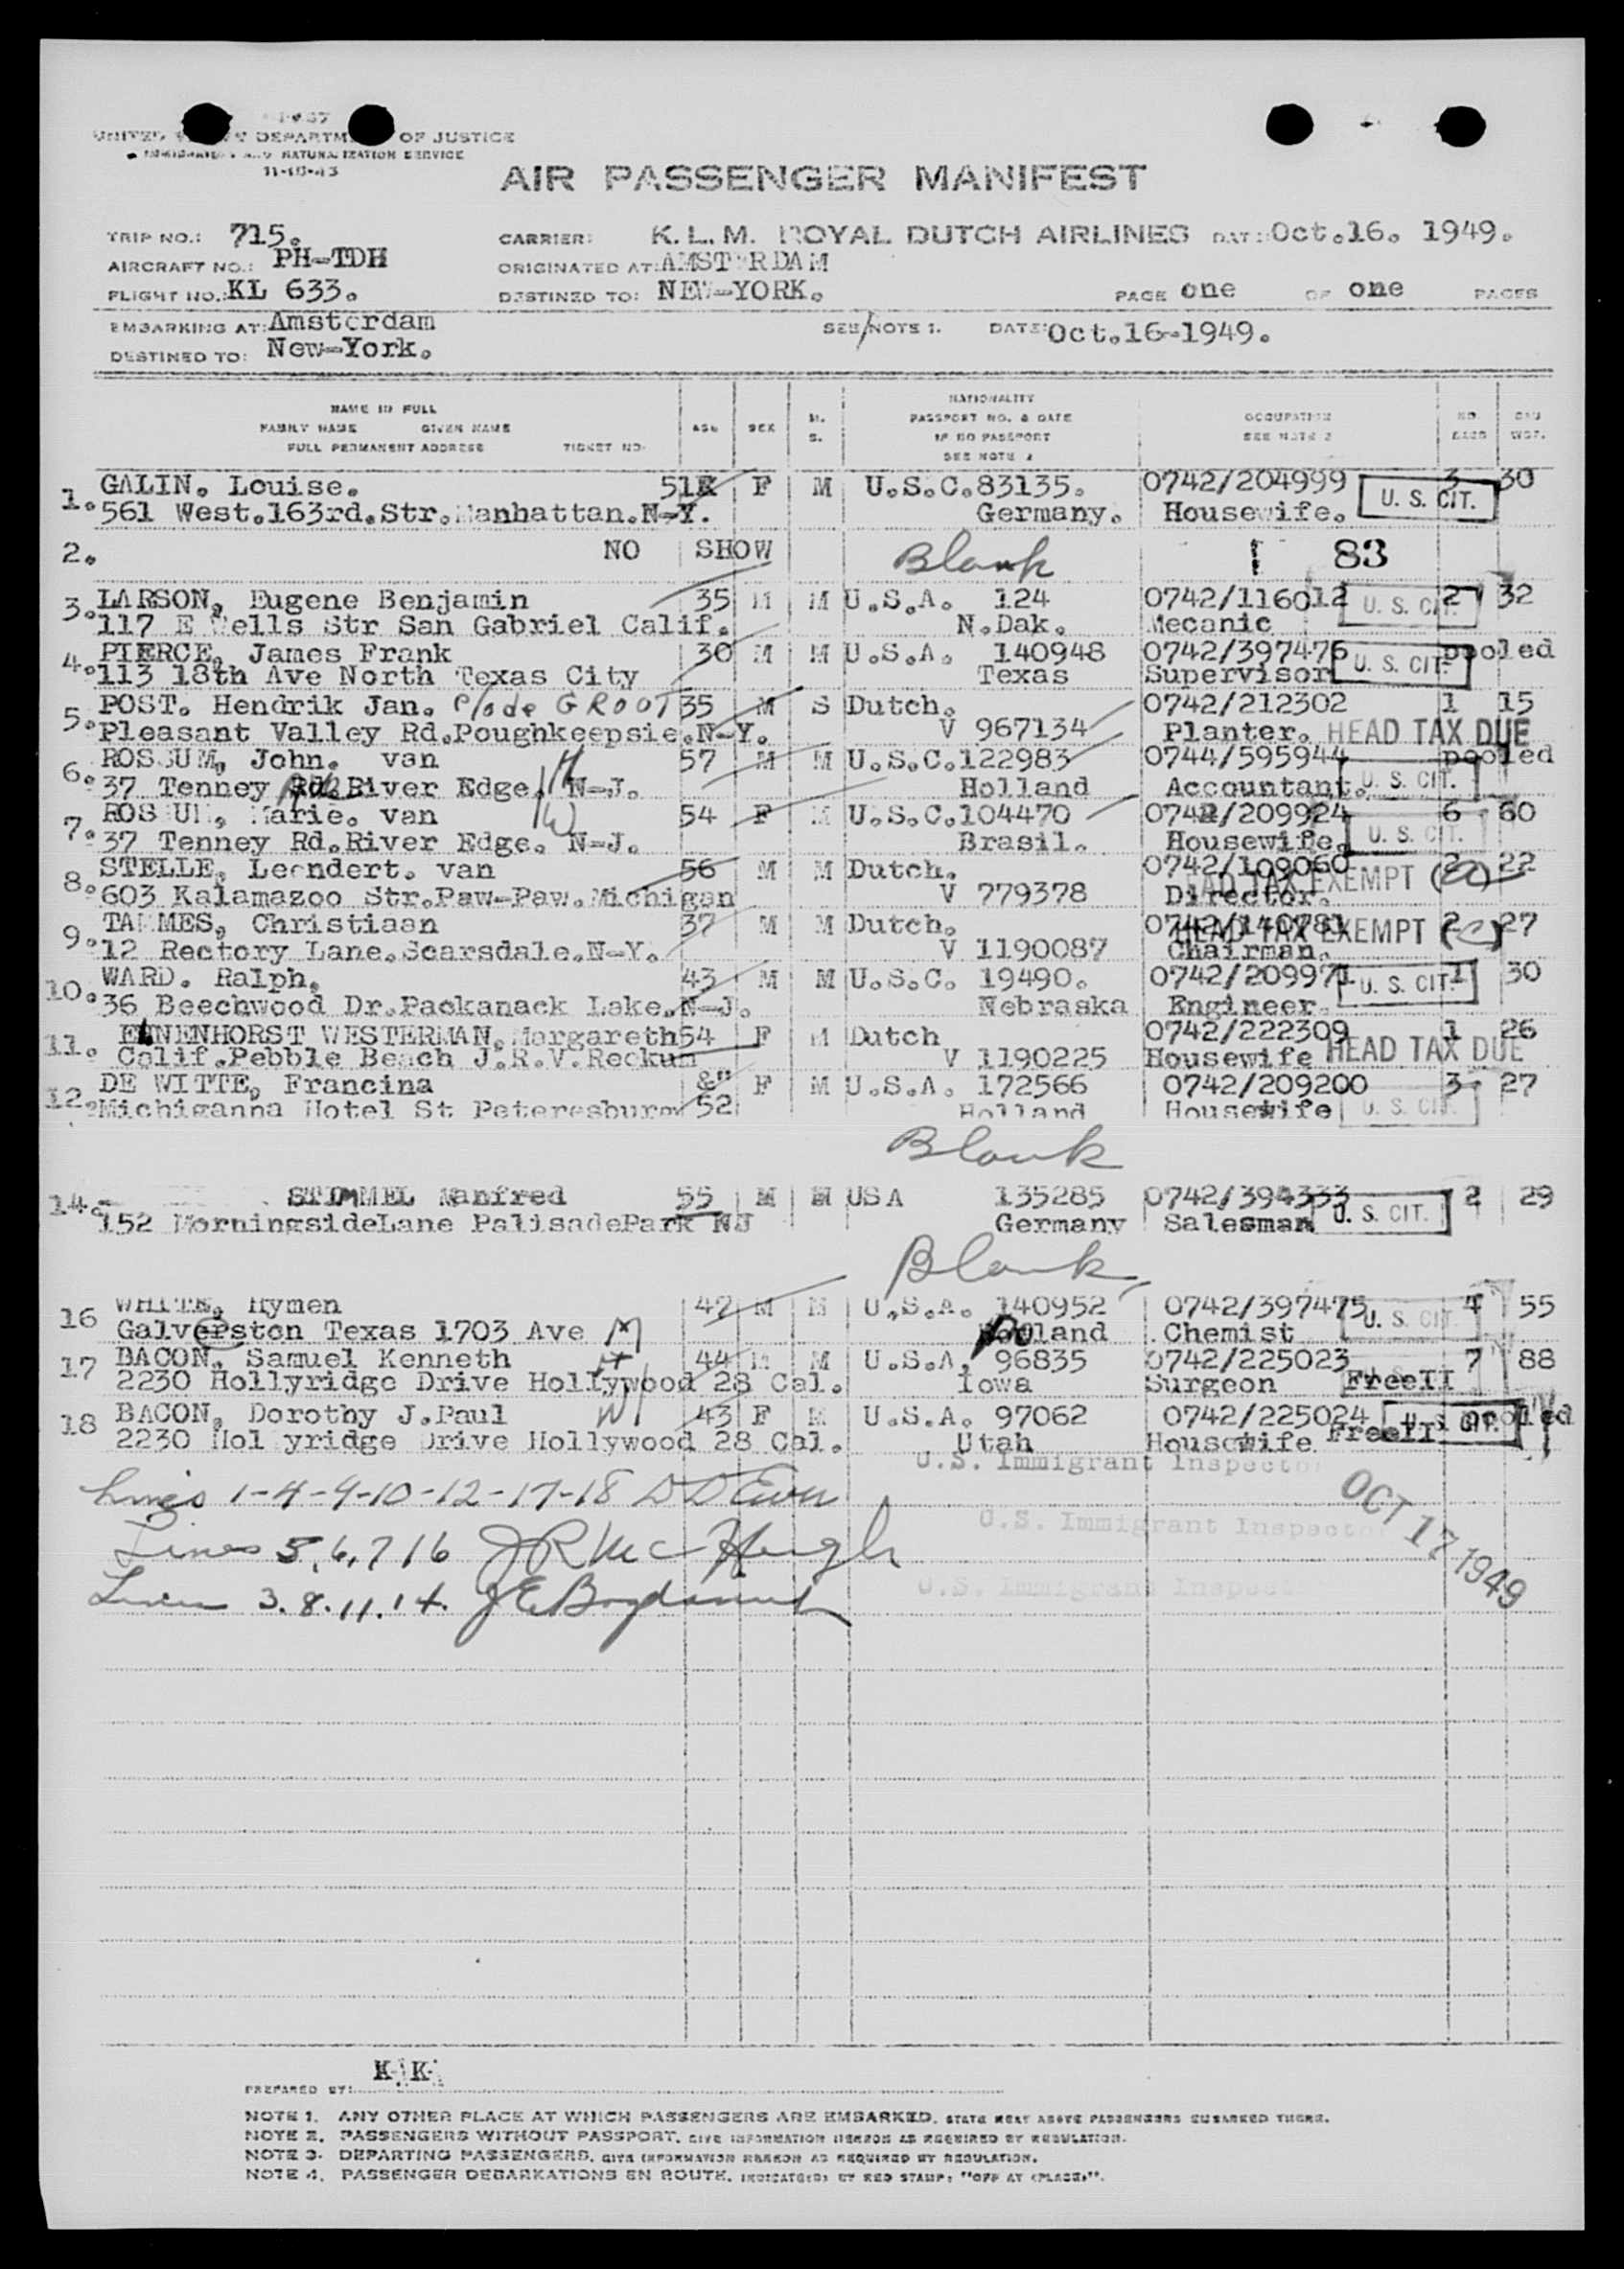 I-437
UNITED STATES DEPARTMENT OF JUSTICE
IMMIGRATION AND NATURALIZATION SERVICE
11-10-43
AIR PASSENGER MANIFEST
TRIP NO.: 715. CARRIER: K.L.M. ROYAL DUTCH AIRLINES DATE: Oct.16. 1949.
AIRCRAFT NO.: PH-TDH ORIGINATED AT: AMSTERDAM
FLIGHT NO.: KL 633. DESTINED TO: NEW-YORK. PAGE one OF one PAGES
EMBARKING AT: Amsterdam SEE NOTE 1. DATE: Oct.16-1949.
DESTINED TO: New-York.
NAME IN FULL
FAMILY NAME GIVEN NAME
FULL PERMANENT ADDRESS TICKET NO.
AGE SEX M. S.
NATIONALITY
PASSPORT NO. & DATE
IF NO PASSPORT
SEE NOTE 2
OCCUPATION
SEE NOTE 2
NO. BAGS
BAG WGT.
1. GALIN. Louise. 51 F M U.S.C.83135. 0742/204999 3 30
561 West.163rd.Str.Manhattan.N-Y. Germany. Housewife. U. S. CIT.
2. NO SHOW Blank 83
3. LARSON, Eugene Benjamin 35 M M U.S.A. 124 0742/116012 U. S. CIT. 2 32
117 E Wells Str San Gabriel Calif. N.Dak. Mecanic
4. PIERCE, James Frank 30 M M U.S.A. 140948 0742/397476 pooled
113 18th Ave North Texas City Texas Supervisor U. S. CIT.
5. POST. Hendrik Jan. GROOT 35 M S Dutch. 0742/212302 1 15
Pleasant Valley Rd.Poughkeepsie.N-Y. V 967134 Planter. HEAD TAX DUE
6. ROSSUM, John. van 57 M M U.S.C.122983 0744/595944 pooled
37 Tenney Rd.River Edge. H N-J. Holland Accountant. U. S. CIT.
7. ROSSUM, Marie. van W 54 F M U.S.C.104470 0742/209924 6 60
37 Tenney Rd.River Edge. N-J. Brasil. Housewife. U. S. CIT.
8. STELLE, Leendert. van 56 M M Dutch. 0742/109060 2 22
603 Kalamazoo Str.Paw-Paw.Michigan V 779378 Director. HEAD TAX EXEMPT (a)
9. TAMMES, Christiaan 37 M M Dutch. 0742/140781 2 27
12 Rectory Lane.Scarsdale.N-Y. V 1190087 Chairman. HEAD TAX EXEMPT (c)
10. WARD. Ralph. 43 M M U.S.C. 19490. 0742/209971 U. S. CIT. 1 30
36 Beechwood Dr.Packanack Lake.N-J. Nebraska Engineer.
11. ENNENHORST WESTERMAN.Margareth 54 F M Dutch 0742/222309 1 26
Calif.Pebble Beach J.R.V.Reckum V 1190225 Housewife HEAD TAX DUE
12. DE WITTE, Francina F M U.S.A. 172566 0742/209200 3 27
Michiganna Hotel St Petersburg 52 Holland Housewife U. S. CIT.
Blank
14. STIMMEL Manfred 55 M M USA 135285 0742/394333 2 29
152 MorningsideLane PalisadePark NJ Germany Salesman U. S. CIT.
Blank
16 WHITE, Hymen 42 M M U.S.A. 140952 0742/397475 U. S. CIT. 4 55
Galverston Texas 1703 Ave M Poland Chemist
17 BACON, Samuel Kenneth H 44 M M U.S.A. 96835 0742/225023 7 88
2230 Hollyridge Drive Hollywood 28 Cal. Iowa Surgeon FreeII
18 BACON, Dorothy J.Paul W 43 F M U.S.A. 97062 0742/225024 U. S. CIT. pooled
2230 Hollyridge Drive Hollywood 28 Cal. Utah Housewife FreeII
U.S. Immigrant Inspector
Lines 1-4-9-10-12-17-18
OCT 17 1949
U.S. Immigrant Inspector
Lines 5,6,7 16 J R McHugh
U.S. Immigrant Inspector
Lines 3.8.11.14.
PREPARED BY: K K
NOTE 1. ANY OTHER PLACE AT WHICH PASSENGERS ARE EMBARKED. STATE NEXT ABOVE PASSENGERS EMBARKED THERE.
NOTE 2. PASSENGERS WITHOUT PASSPORT. GIVE INFORMATION HEREON AS REQUIRED BY REGULATION.
NOTE 3. DEPARTING PASSENGERS. GIVE INFORMATION HEREON AS REQUIRED BY REGULATION.
NOTE 4. PASSENGER DEBARKATIONS EN ROUTE. INDICATE(D) BY RED STAMP: "OFF AT (PLACE)".